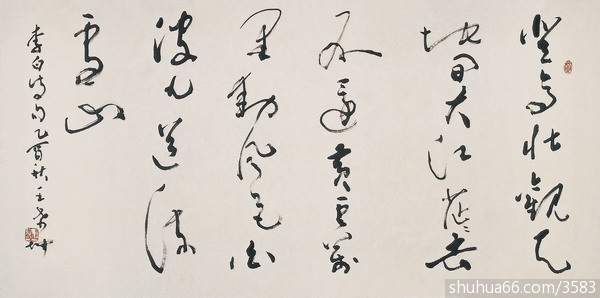 登高壮觀天
地間大江茫茫去
不還黄雲萬
里動風色白
波九道流
雪山
李白詩句乙酉秋王學仲
shuhua66.com/3583